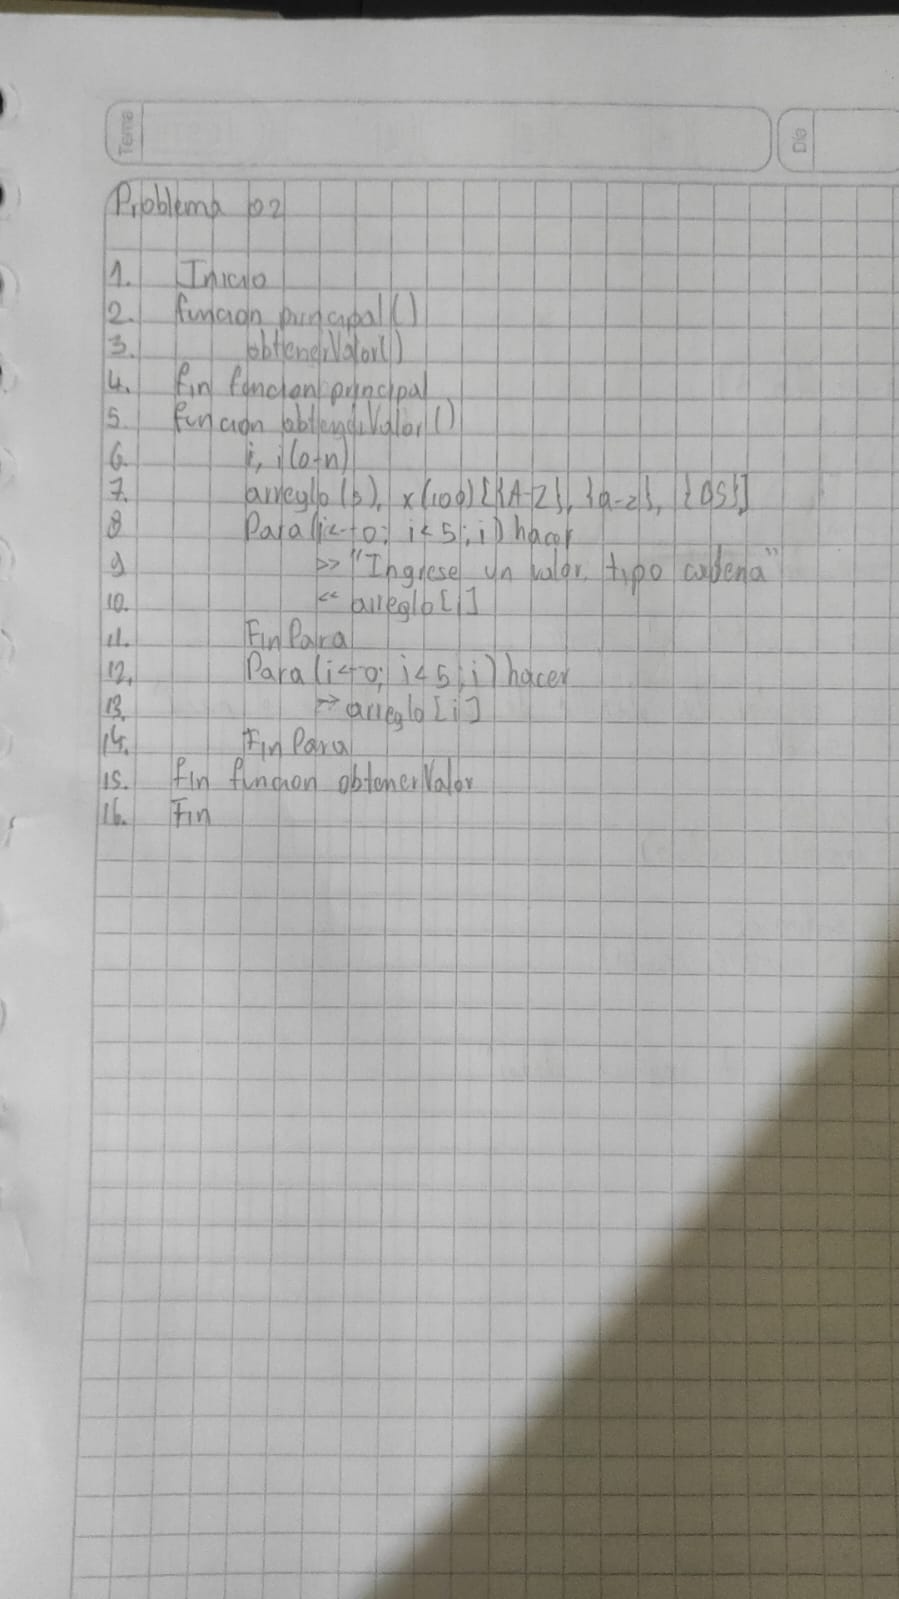 Tema
Dia
Problema 02
1. Inicio
2. funcion principal()
3. obtenerValor()
4. fin funcion principal
5. funcion obtenerValor()
6. i, i(0-n)
7. arreglo(5), x(100)[{A-Z}, {a-z}, {0S}]
8 Para(i<-0; i<5; i) hacer
9 >> "Ingrese un valor tipo cadena"
10. << arreglo[i]
11. Fin Para
12. Para(i<-0; i<5; i) hacer
13. >> arreglo[i]
14. Fin Para
15. fin funcion obtenerValor
16. Fin